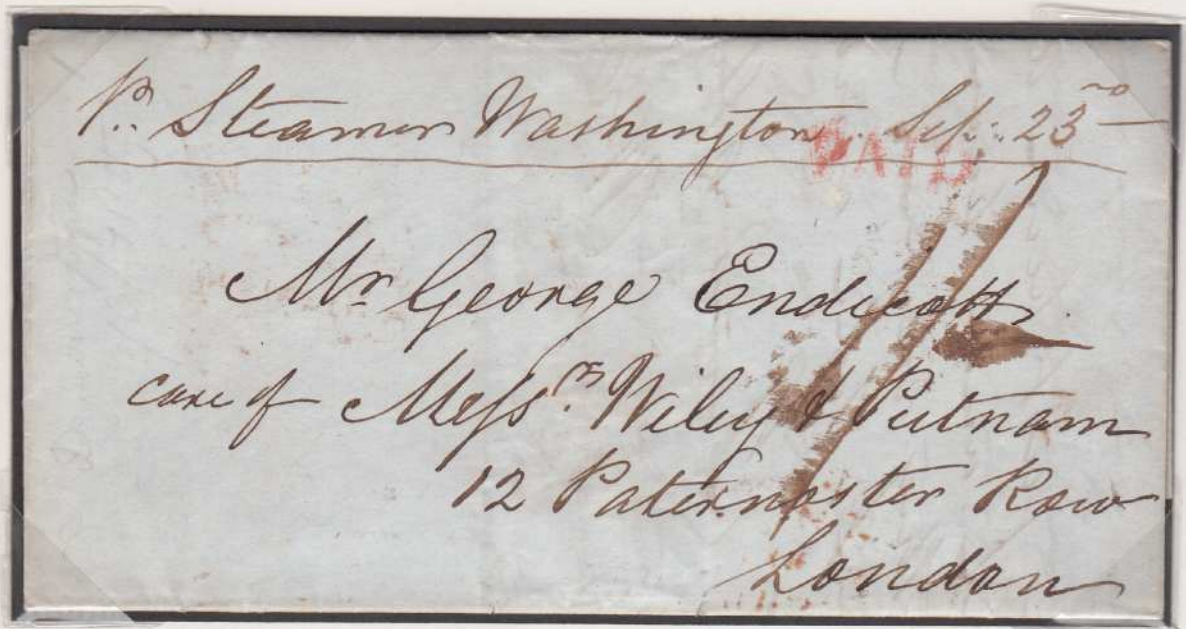 Pr. Steamer Washington. Sep: 23rd
PAID
Mr George Endicott
care of Messrs. Wiley & Putnam
12 Paternoster Row
London